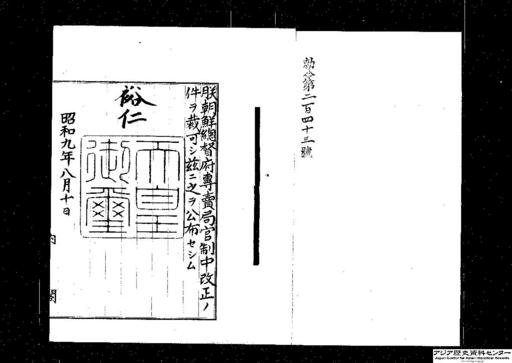 勅令第二百四十三號
朕朝鮮總督府專賣局官制中改正ノ
件ヲ裁可シ茲ニ之ヲ公布セシム
裕仁
天皇
御璽
昭和九年八月十日
内閣
アジア歴史資料センター
Japan Center for Asian Historical Records